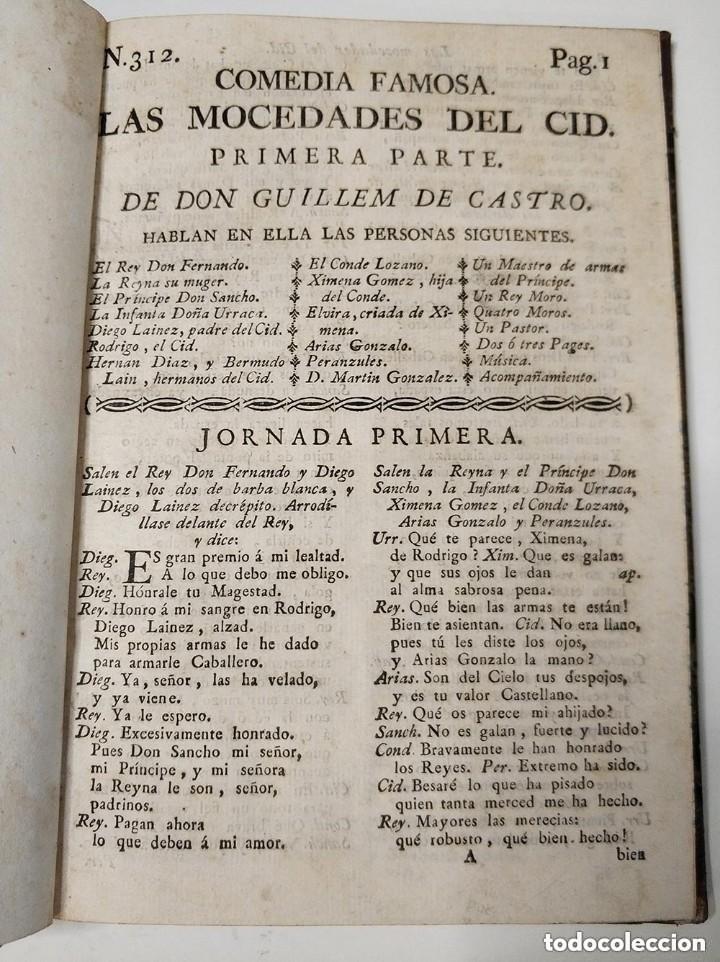 N.312. Pag.1
COMEDIA FAMOSA.
LAS MOCEDADES DEL CID.
PRIMERA PARTE.
DE DON GUILLEM DE CASTRO.
HABLAN EN ELLA LAS PERSONAS SIGUIENTES.
El Rey Don Fernando.
La Reyna su muger.
El Príncipe Don Sancho.
La Infanta Doña Urraca.
Diego Lainez, padre del Cid.
Rodrigo, el Cid.
Hernan Diaz, y Bermudo
Lain, hermanos del Cid.
El Conde Lozano.
Ximena Gomez, hija
del Conde.
Elvira, criada de Xi-
mena.
Arias Gonzalo.
Peranzules.
D. Martin Gonzalez.
Un Maestro de armas
del Príncipe.
Un Rey Moro.
Quatro Moros.
Un Pastor.
Dos ó tres Pages.
Música.
Acompañamiento.
JORNADA PRIMERA.
Salen el Rey Don Fernando y Diego
Lainez, los dos de barba blanca, y
Diego Lainez decrépito. Arrodí-
llase delante del Rey,
y dice:
Dieg. ES gran premio á mi lealtad.
Rey. A lo que debo me obligo.
Dieg. Hónrale tu Magestad.
Rey. Honro á mi sangre en Rodrigo,
Diego Lainez, alzad.
Mis propias armas le he dado
para armarle Caballero.
Dieg. Ya, señor, las ha velado,
y ya viene.
Rey. Ya le espero.
Dieg. Excesivamente honrado.
Pues Don Sancho mi señor,
mi Príncipe, y mi señora
la Reyna le son, señor,
padrinos.
Rey. Pagan ahora
lo que deben á mi amor.
Salen la Reyna y el Príncipe Don
Sancho, la Infanta Doña Urraca,
Ximena Gomez, el Conde Lozano,
Arias Gonzalo y Peranzules.
Urr. Qué te parece, Ximena,
de Rodrigo? Xim. Que es galan:
y que sus ojos le dan ap.
al alma sabrosa pena.
Rey. Qué bien las armas te están!
Bien te asientan. Cid. No era llano,
pues tú les diste los ojos,
y Arias Gonzalo la mano?
Arias. Son del Cielo tus despojos,
y es tu valor Castellano.
Rey. Qué os parece mi ahijado?
Sanch. No es galan, fuerte y lucido?
Cond. Bravamente le han honrado
los Reyes. Per. Extremo ha sido.
Cid. Besaré lo que ha pisado
quien tanta merced me ha hecho.
Rey. Mayores las merecias:
qué robusto, qué bien hecho!
A bien
todocoleccion